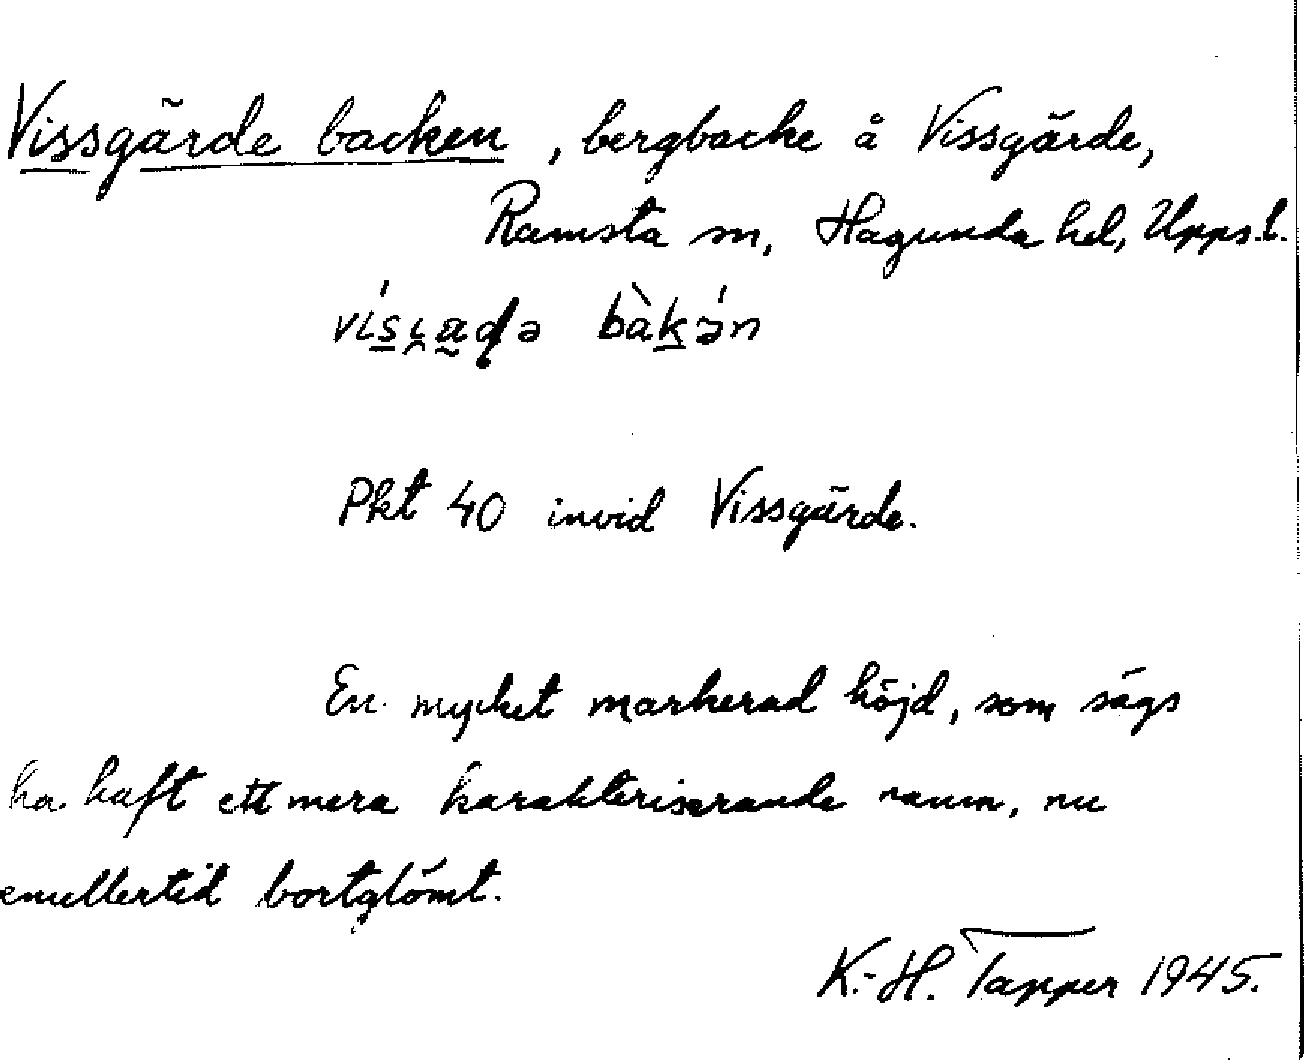 Vissgärde backen, bergbacke å Vissgärde,
Ramsta sn, Hagunda hd, Upps. l.
bàkə́n
Pkt 40 invid Vissgärde.
En mycket markerad höjd, som sägs
ha haft ett mera karakteriserande namn, nu
emellertid bortglömt.
K.-H. Tapper 1945.